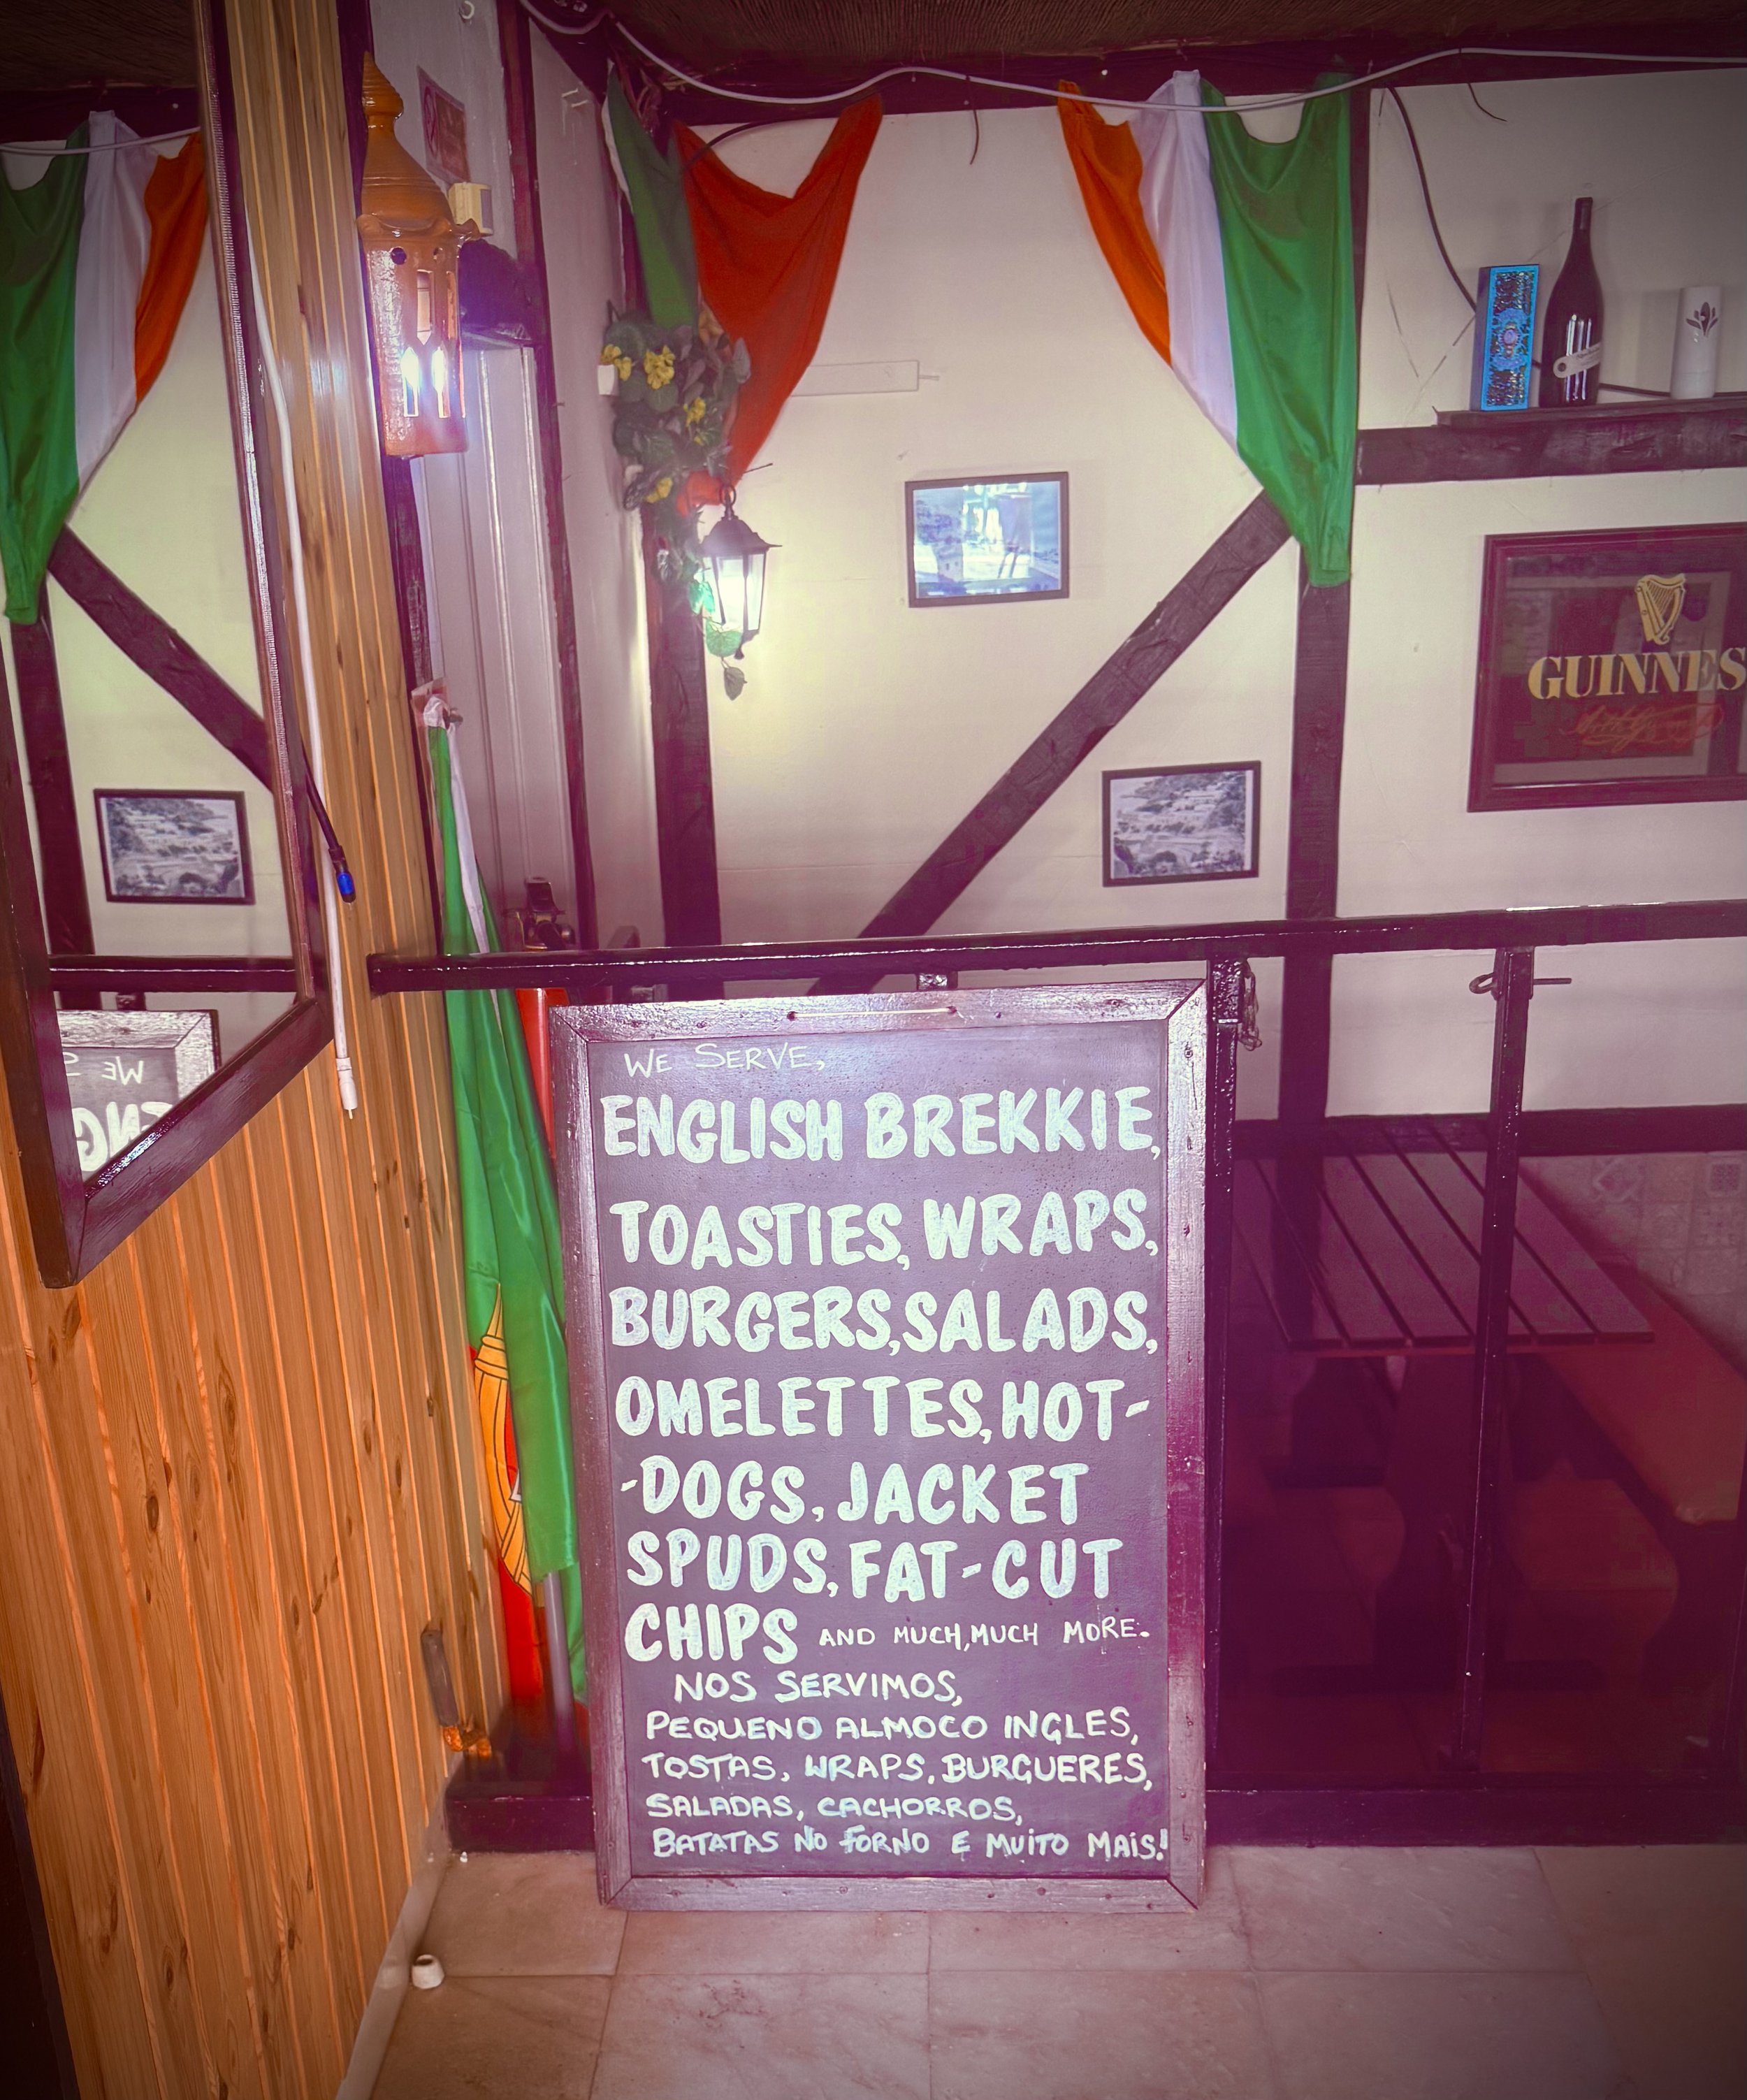 GUINNES
WE SERVE,
ENGLISH BREKKIE,
TOASTIES, WRAPS,
BURGERS, SALADS,
OMELETTES, HOT-
-DOGS, JACKET
SPUDS, FAT-CUT
CHIPS AND MUCH, MUCH MORE.
NOS SERVIMOS,
PEQUENO ALMOCO INGLES,
TOSTAS, WRAPS, BURGUERES,
SALADAS, CACHORROS,
BATATAS NO FORNO E MUITO MAIS!
WE S
ENG